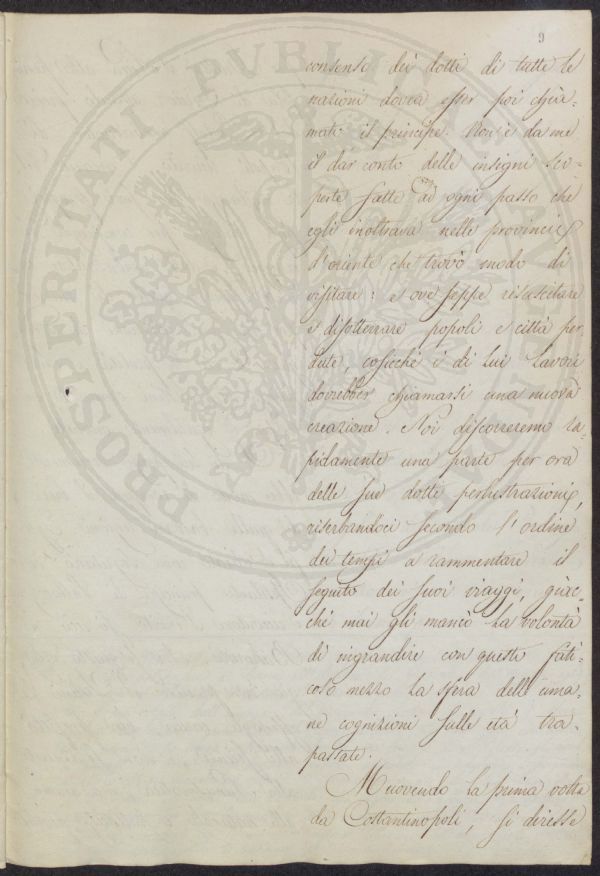 9
consenso dei dotti di tutte le
nazioni dovea esser poi chia-
mato il principe. Non è da me
il dar conto delle insigni sco-
perte fatte ad ogni passo che
egli inoltrava nelle provincie
d'oriente che trovò modo di
visitare: e ove seppe risuscitare
e disotterrare popoli e città per-
dute, cosicchè i di lui lavori
dovrebber chiamarsi una nuova
creazione. Noi discorreremo ra-
pidamente una parte per ora
delle sue dotte perlustrazioni,
riserbandoci secondo l'ordine
dei tempi a rammentare il
seguito dei suoi viaggi, giac-
chè mai gli mancò la volontà
di ingrandire con questo fati-
coso mezzo la sfera delle uma-
ne cognizioni sulle età tra-
passate.
Muovendo la prima volta
da Costantinopoli, si diresse
PROSPERITATI PVBLICAE